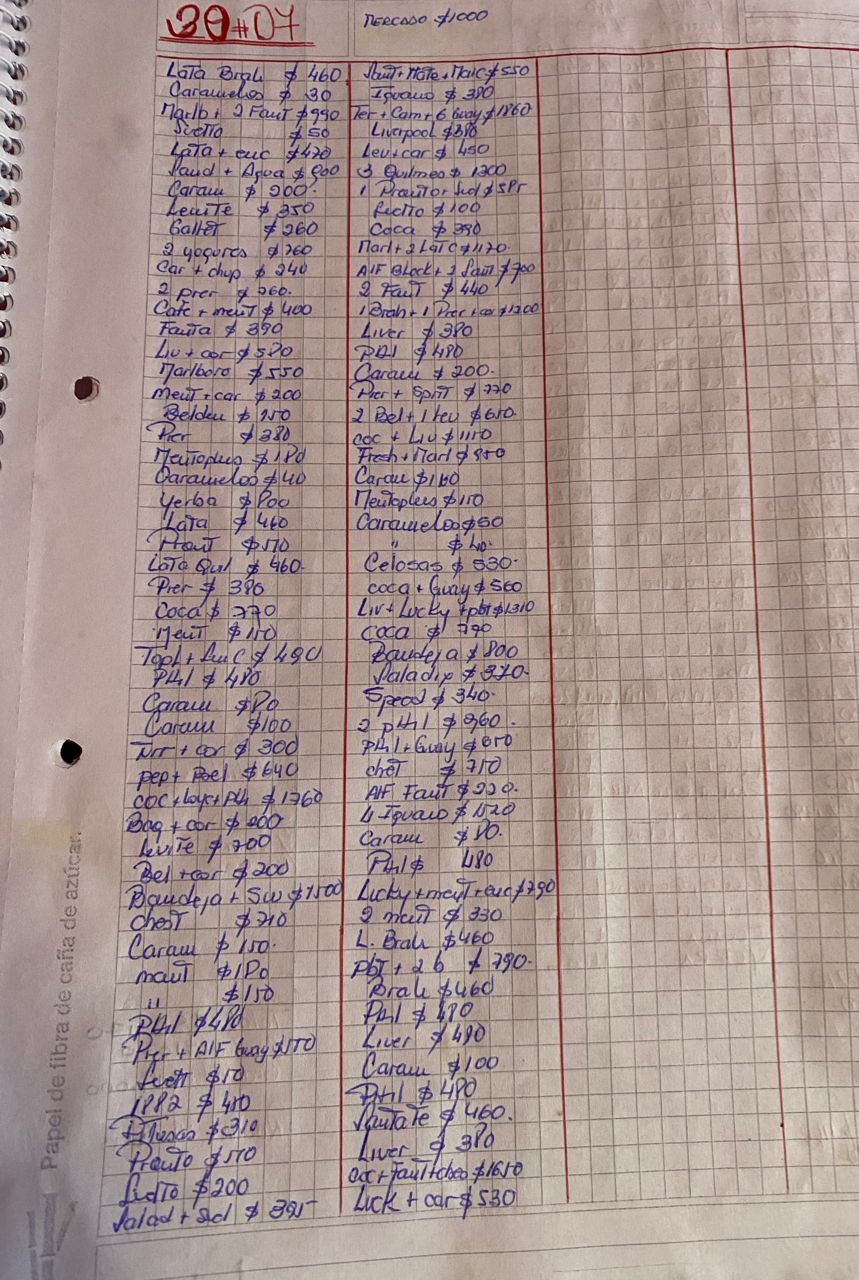 30#07
MERCADO $1000
Lata Brah $460
Caramelos $30
Marlb + 2 Fant $990
Suelto $50
Lata + enc $470
Sand + Agua $800
Caram $200.
Levite $350
Gallet $260
2 yogures $760
Car + chup $240
2 prer $760.
Cafe + ment $400
Fanta $390
Liv + car $580
Marlboro $550
Ment + car $200
Belden $150
Prer $380
Mentoplus $180
Caramelos $40
Yerba $800
Lata $460
Prant $570
Lata Quil $460.
Prer $380
Coca $770
Ment $150
Topl + $490
PHl $480
Caram $80
Caram $100
+ car $300
pep + $640
coc + + PH $1760
Bag + car $200
Levite $700
Bel + car $200
Bandeja + Sw $1500
chest $710
Caram $150.
mant $180
" $150
PHl $480
Prer + Alf Guay $
Suelt $50
1882 $
$310
Pranto $570
Suelto $200
Salad + Sed $395
Sant + Mate + Marc $550
Iguana $380
Ter + Cam + 6 Guay $1860
Liverpool $380
Lev + car $450
3 Quilmes $1200
1
Suelto $100
Coca $390
Marl + 2 Lat C $1170.
Alf Block + 2 Sant $700
2 Fant $440
1 Brah + 1 Prer + car $1200
Liver $380
PHl $480
Caram $200.
Prer + Sprit $770
2 Bel + 1 Lev $650.
coc + Liv $1150
Fresh + Marl $850
Caram $160
Mentoplus $150
Caramelos $50
" $40.
Celosas $530.
coca + Guay $560
Liv + Lucky + pbt $1310
coca $790
Bandeja $800
Saladix $370.
Speed $340.
2 pHl $960.
PHl + Guay $650
chest $710
Alf Fant $220.
4 Iguana $1520
Caram $80.
PHl $480
Lucky + ment + enc $790
2 ment $330
L. Brah $460
pbt + 2 b $790.
Brah $460
PHl $480
Liver $480
Caram $100
PHl $480
Santate $460.
Liver $380
coc + Fant + $1650
Luck + car $530
Papel de fibra de caña de azúcar.